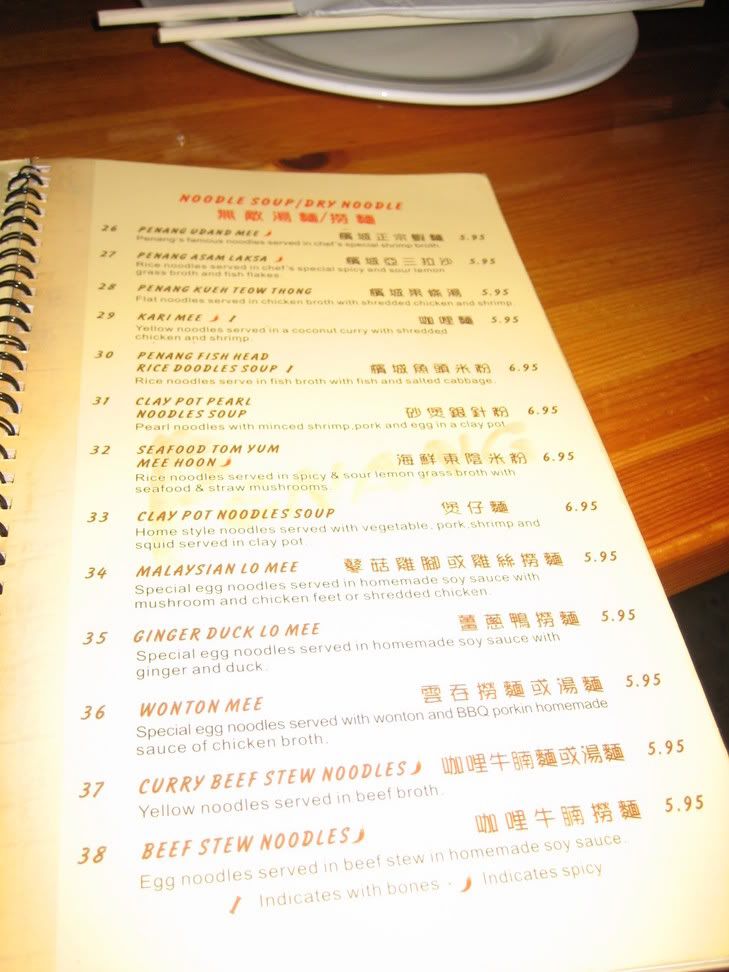 NOODLE SOUP/DRY NOODLE
無敵湯麵/撈麵
26 PENANG UDAND MEE 檳城正宗蝦麵 5.95
Penang's famous noodles served in chef's special shrimp broth.
27 PENANG ASAM LAKSA 檳城亞三拉沙 5.95
Rice noodles served in chef's special spicy and sour lemon
grass broth and fish flakes
28 PENANG KUEH TEOW THONG 檳城果條湯 5.95
Flat noodles served in chicken broth with shredded chicken and shrimp.
29 KARI MEE 咖哩麵 5.95
Yellow noodles served in a coconut curry with shredded
chicken and shrimp.
30 PENANG FISH HEAD
RICE DOODLES SOUP 檳城魚頭米粉 6.95
Rice noodles serve in fish broth with fish and salted cabbage.
31 CLAY POT PEARL
NOODLES SOUP 砂煲銀針粉 6.95
Pearl noodles with minced shrimp,pork and egg in a clay pot
32 SEAFOOD TOM YUM
MEE HOON 海鮮東陰米粉 6.95
Rice noodles served in spicy & sour lemon grass broth with
seafood & straw mushrooms.
33 CLAY POT NOODLES SOUP 煲仔麵 6.95
Home style noodles served with vegetable, pork,shrimp and
squid served in clay pot.
34 MALAYSIAN LO MEE 菇雞腳或雞絲撈麵 5.95
Special egg noodles served in homemade soy sauce with
mushroom and chicken feet or shredded chicken.
35 GINGER DUCK LO MEE 薑蔥鴨撈麵 5.95
Special egg noodles served in homemade soy sauce with
ginger and duck.
36 WONTON MEE 雲吞撈麵或湯麵 5.95
Special egg noodles served with wonton and BBQ porkin homemade
sauce of chicken broth.
37 CURRY BEEF STEW NOODLES 咖哩牛腩麵或湯麵 5.95
Yellow noodles served in beef broth.
38 BEEF STEW NOODLES 咖哩牛腩撈麵 5.95
Egg noodles served in beef stew in homemade soy sauce.
Indicates with bones · Indicates spicy